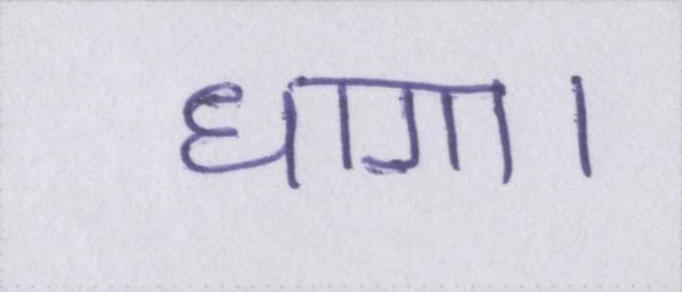 धागा।